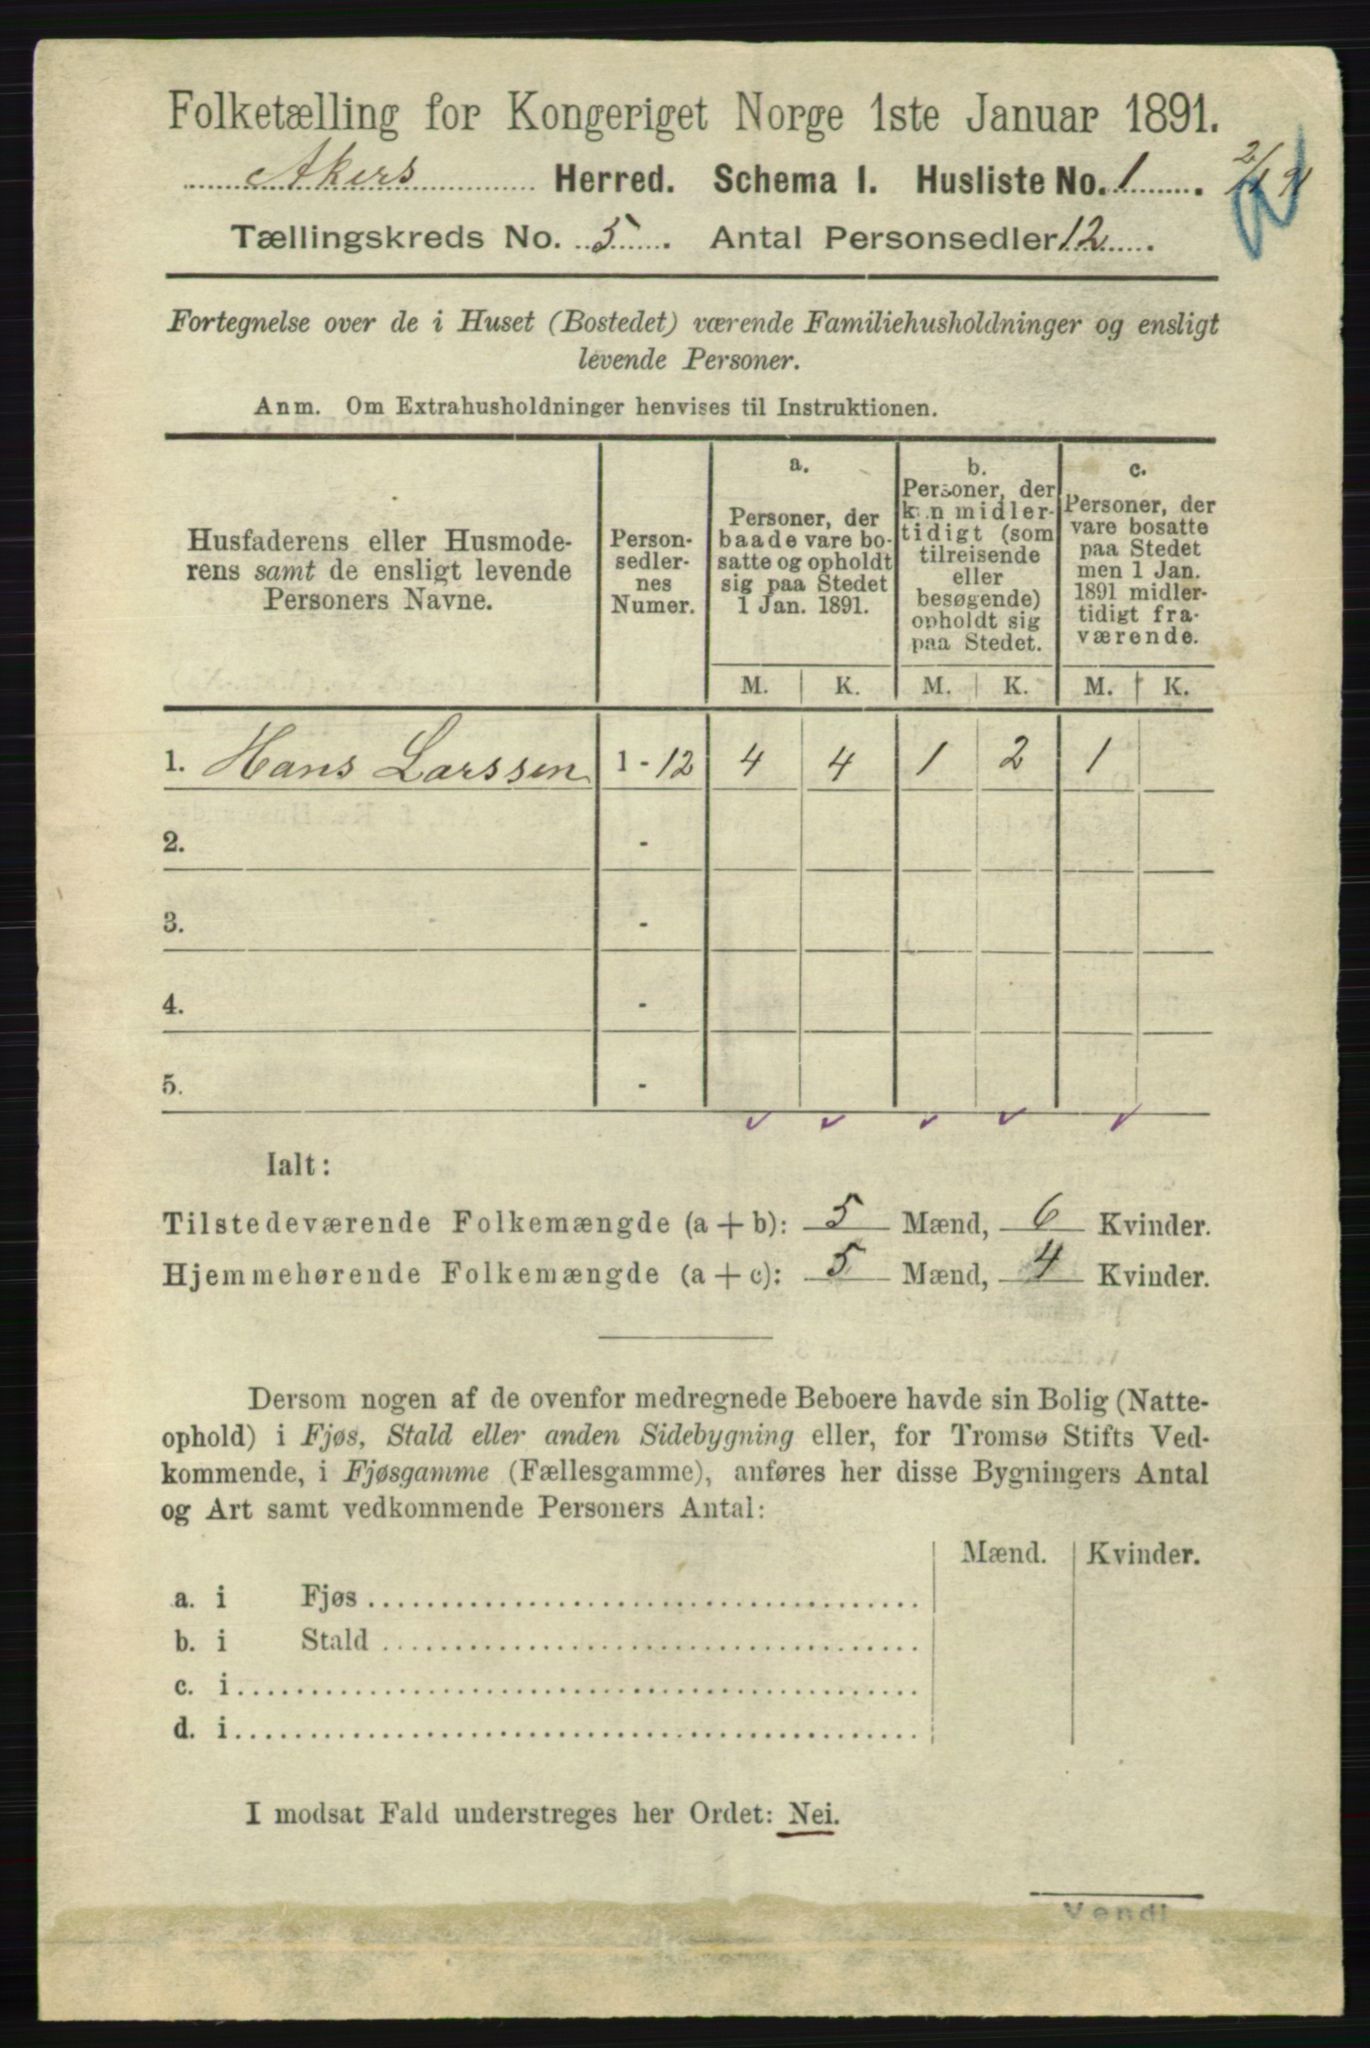 Folketælling for Kongeriget Norge 1ste Januar 1891.
Akers Herred. Schema I. Husliste No. 1.
Tællingskreds No. 5. Antal Personsedler 12.
Fortegnelse over de i Huset (Bostedet) værende Familiehusholdninger og ensligt
levende Personer.
Anm. Om Extrahusholdninger henvises til Instruktionen.
Husfaderens eller Husmode-
rens samt de ensligt levende
Personers Navne.
Person-
sedler-
nes
Numer.
a.
Personer, der
baade vare bo-
satte og opholdt
sig paa Stedet
1 Jan. 1891.
b.
Personer, der
kun midler-
tidigt (som
tilreisende
eller
besøgende)
opholdt sig
paa Stedet.
c.
Personer, der
vare bosatte
paa Stedet
men 1 Jan.
1891 midler-
tidigt fra-
værende.
M. K. M. K. M. K.
1. Hans Larssen 1 - 12 4 4 1 2 1
2. -
3. -
4. -
5. -
Ialt:
Tilstedeværende Folkemængde (a + b): 5 Mænd, 6 Kvinder.
Hjemmehørende Folkemængde (a + c): 5 Mænd, 4 Kvinder.
Dersom nogen af de ovenfor medregnede Beboere havde sin Bolig (Natte-
ophold) i Fjøs, Stald eller anden Sidebygning eller, for Tromsø Stifts Ved-
kommende, i Fjøsgamme (Fællesgamme), anføres her disse Bygningers Antal
og Art samt vedkommende Personers Antal:
Mænd. Kvinder.
a. i Fjøs
b. i Stald
c. i
d. i
I modsat Fald understreges her Ordet: Nei.
Vend!